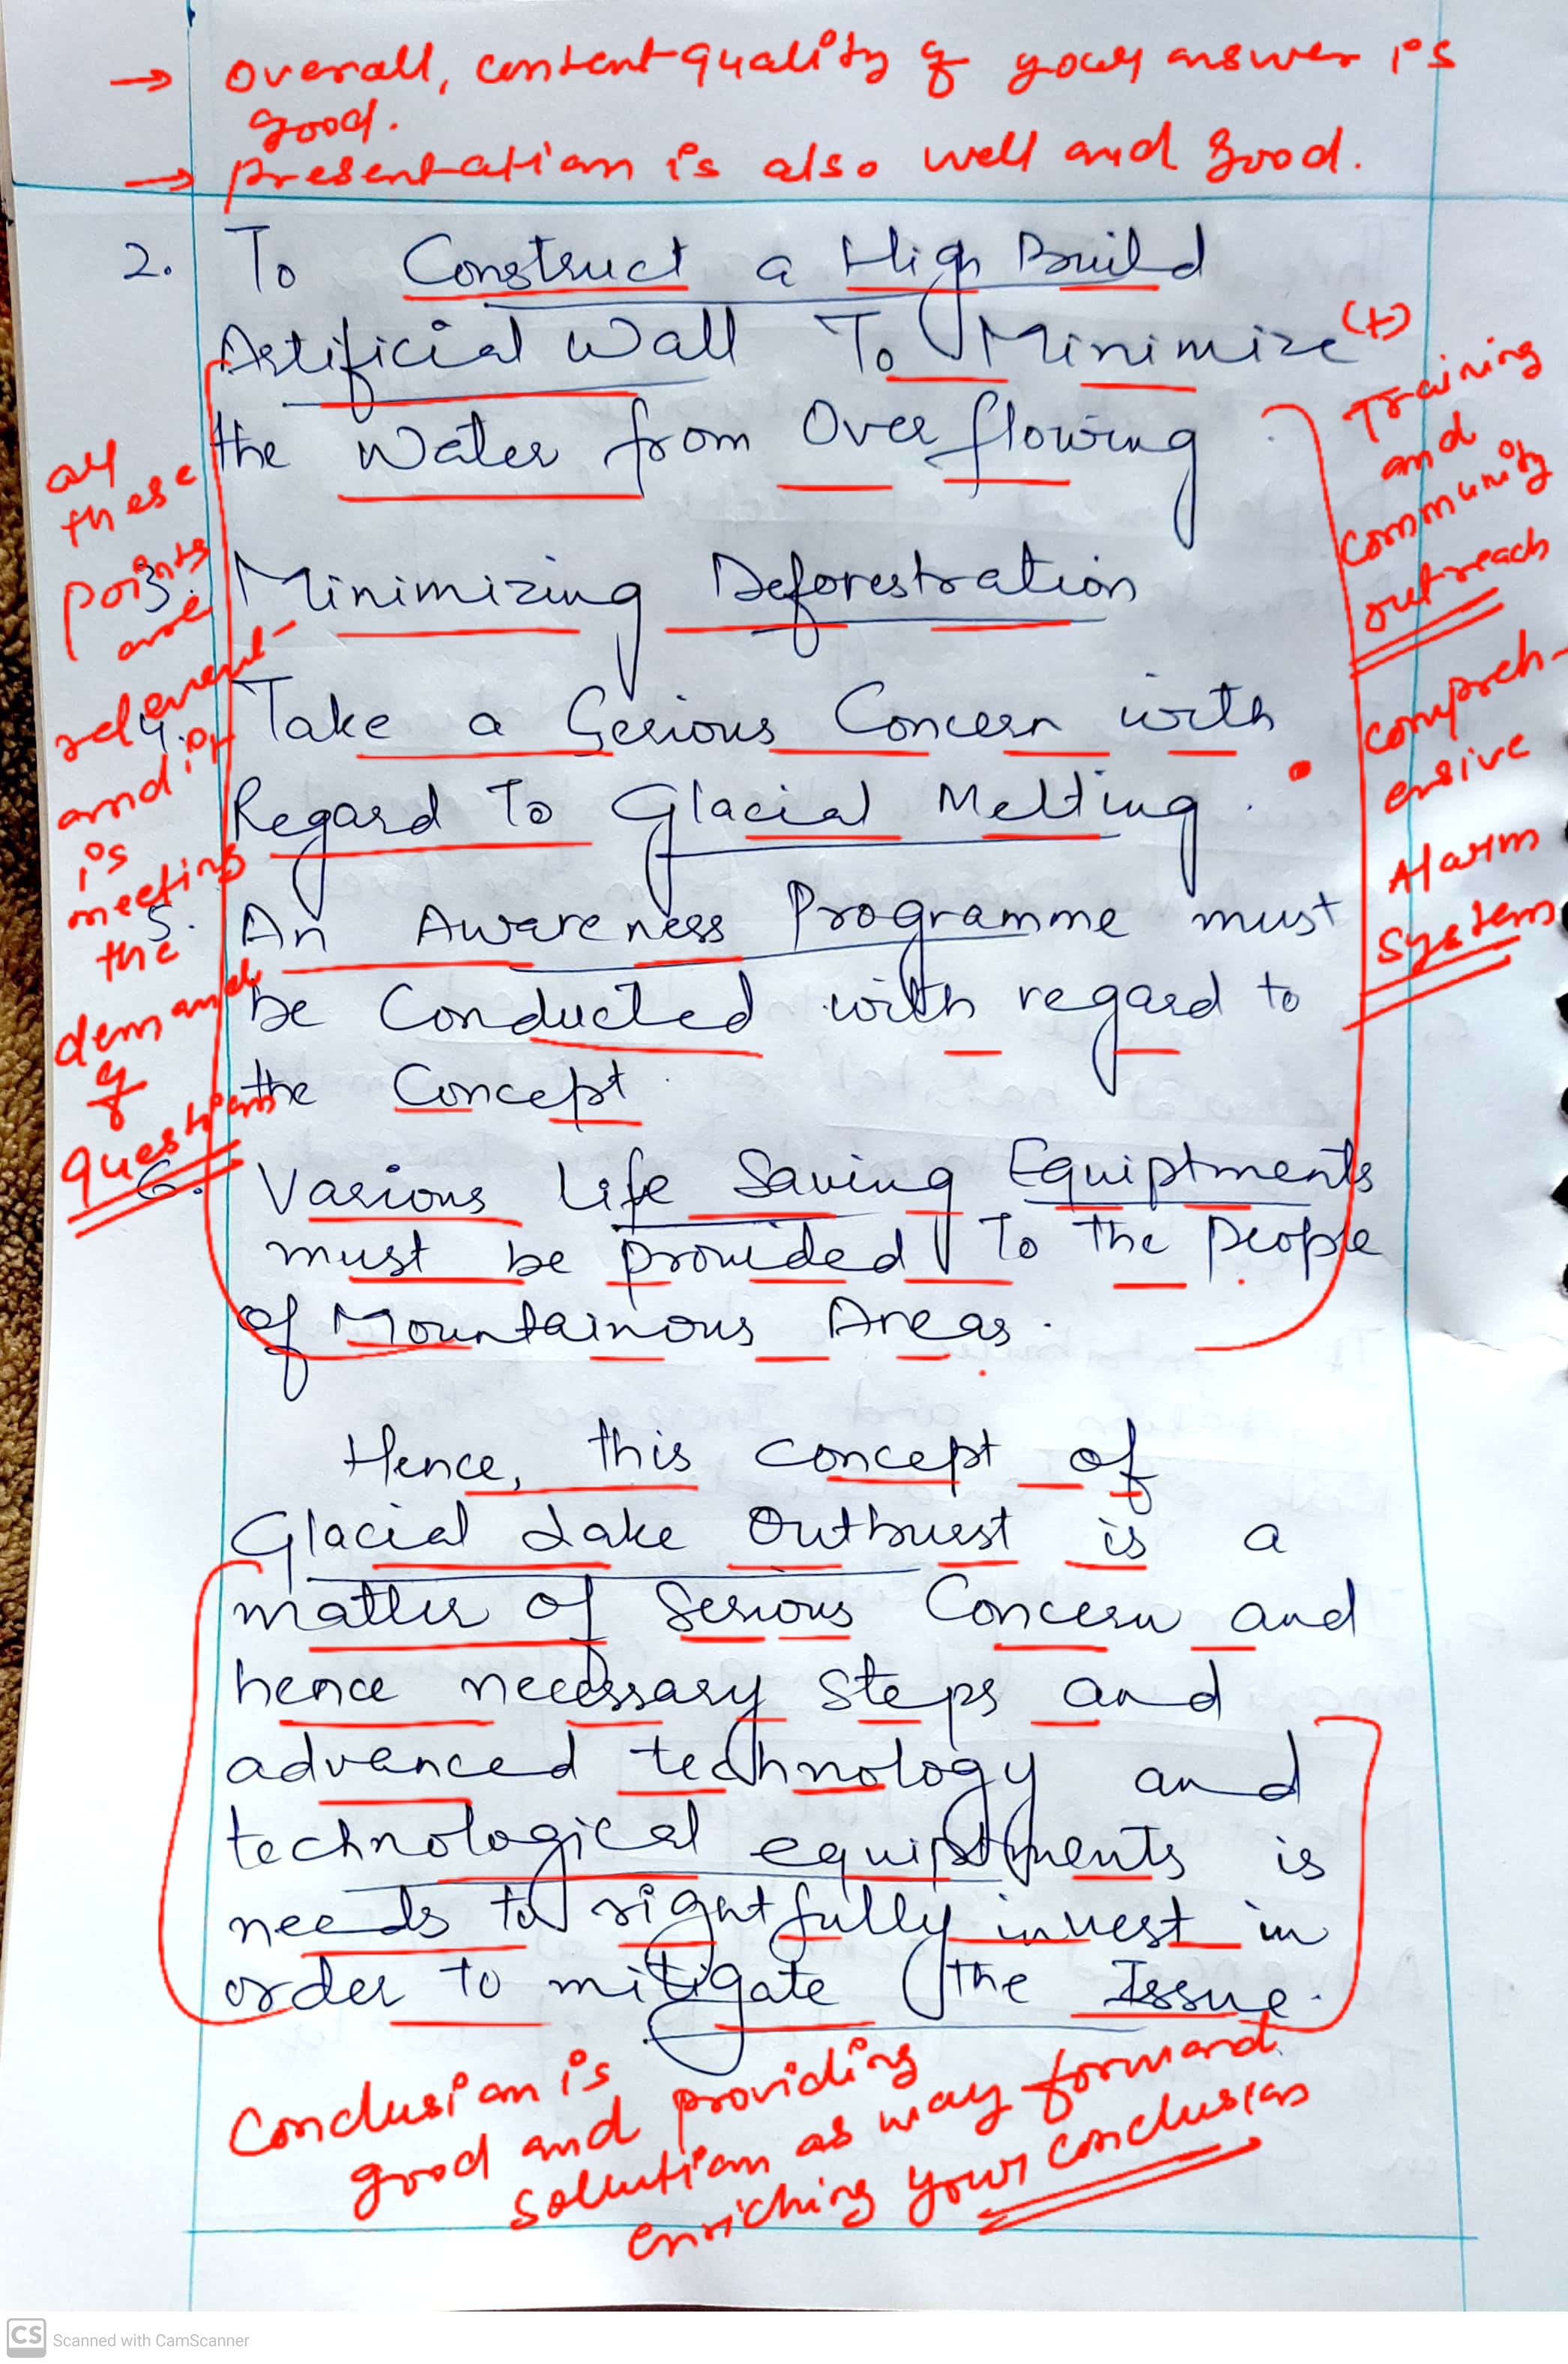 → Overall, content quality of your answer is
good.
→ Presentation is also well and good.
2. To Construct a High Build
Artificial Wall To Minimize
the Water from Over flowing
3. Minimizing Deforestration
4. Take a Serious Concern with
Regard To Glacial Melting.
5. An Awareness Programme must
be Conducted with regard to
the Concept.
6. Various Life Saving Equiptments
must be provided To the People
of Mountainous Areas.
all
these
points
are
relevent
and it
is
meeting
the
demand
of
question
(+)
Training
and
Community
outreach
compreh-
ensive
Alarm
System
Hence, this concept of
Glacial Lake Outburst is a
matter of Serious Concern and
hence necessary steps and
advanced technology and
technological equiptments is
needs to rightfully invest in
order to mitigate the Issue.
Conclusion is
good and providing
solution as way forward
enriching your conclusion
CS Scanned with CamScanner